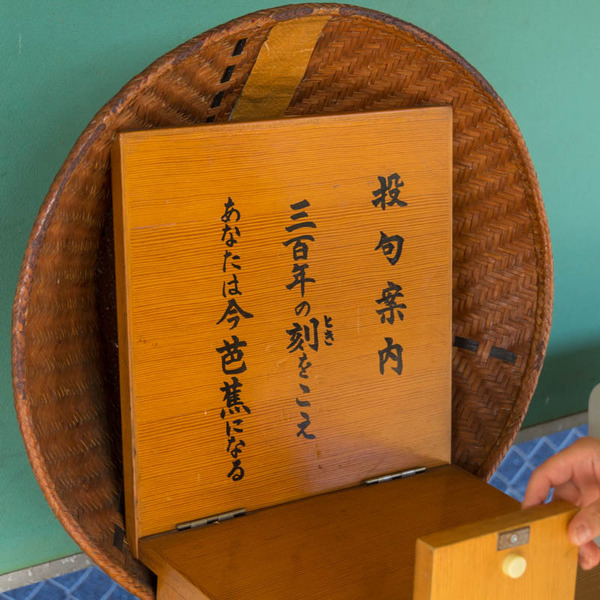 投句案内
三百年の刻をこえ
とき
あなたは今芭蕉になる